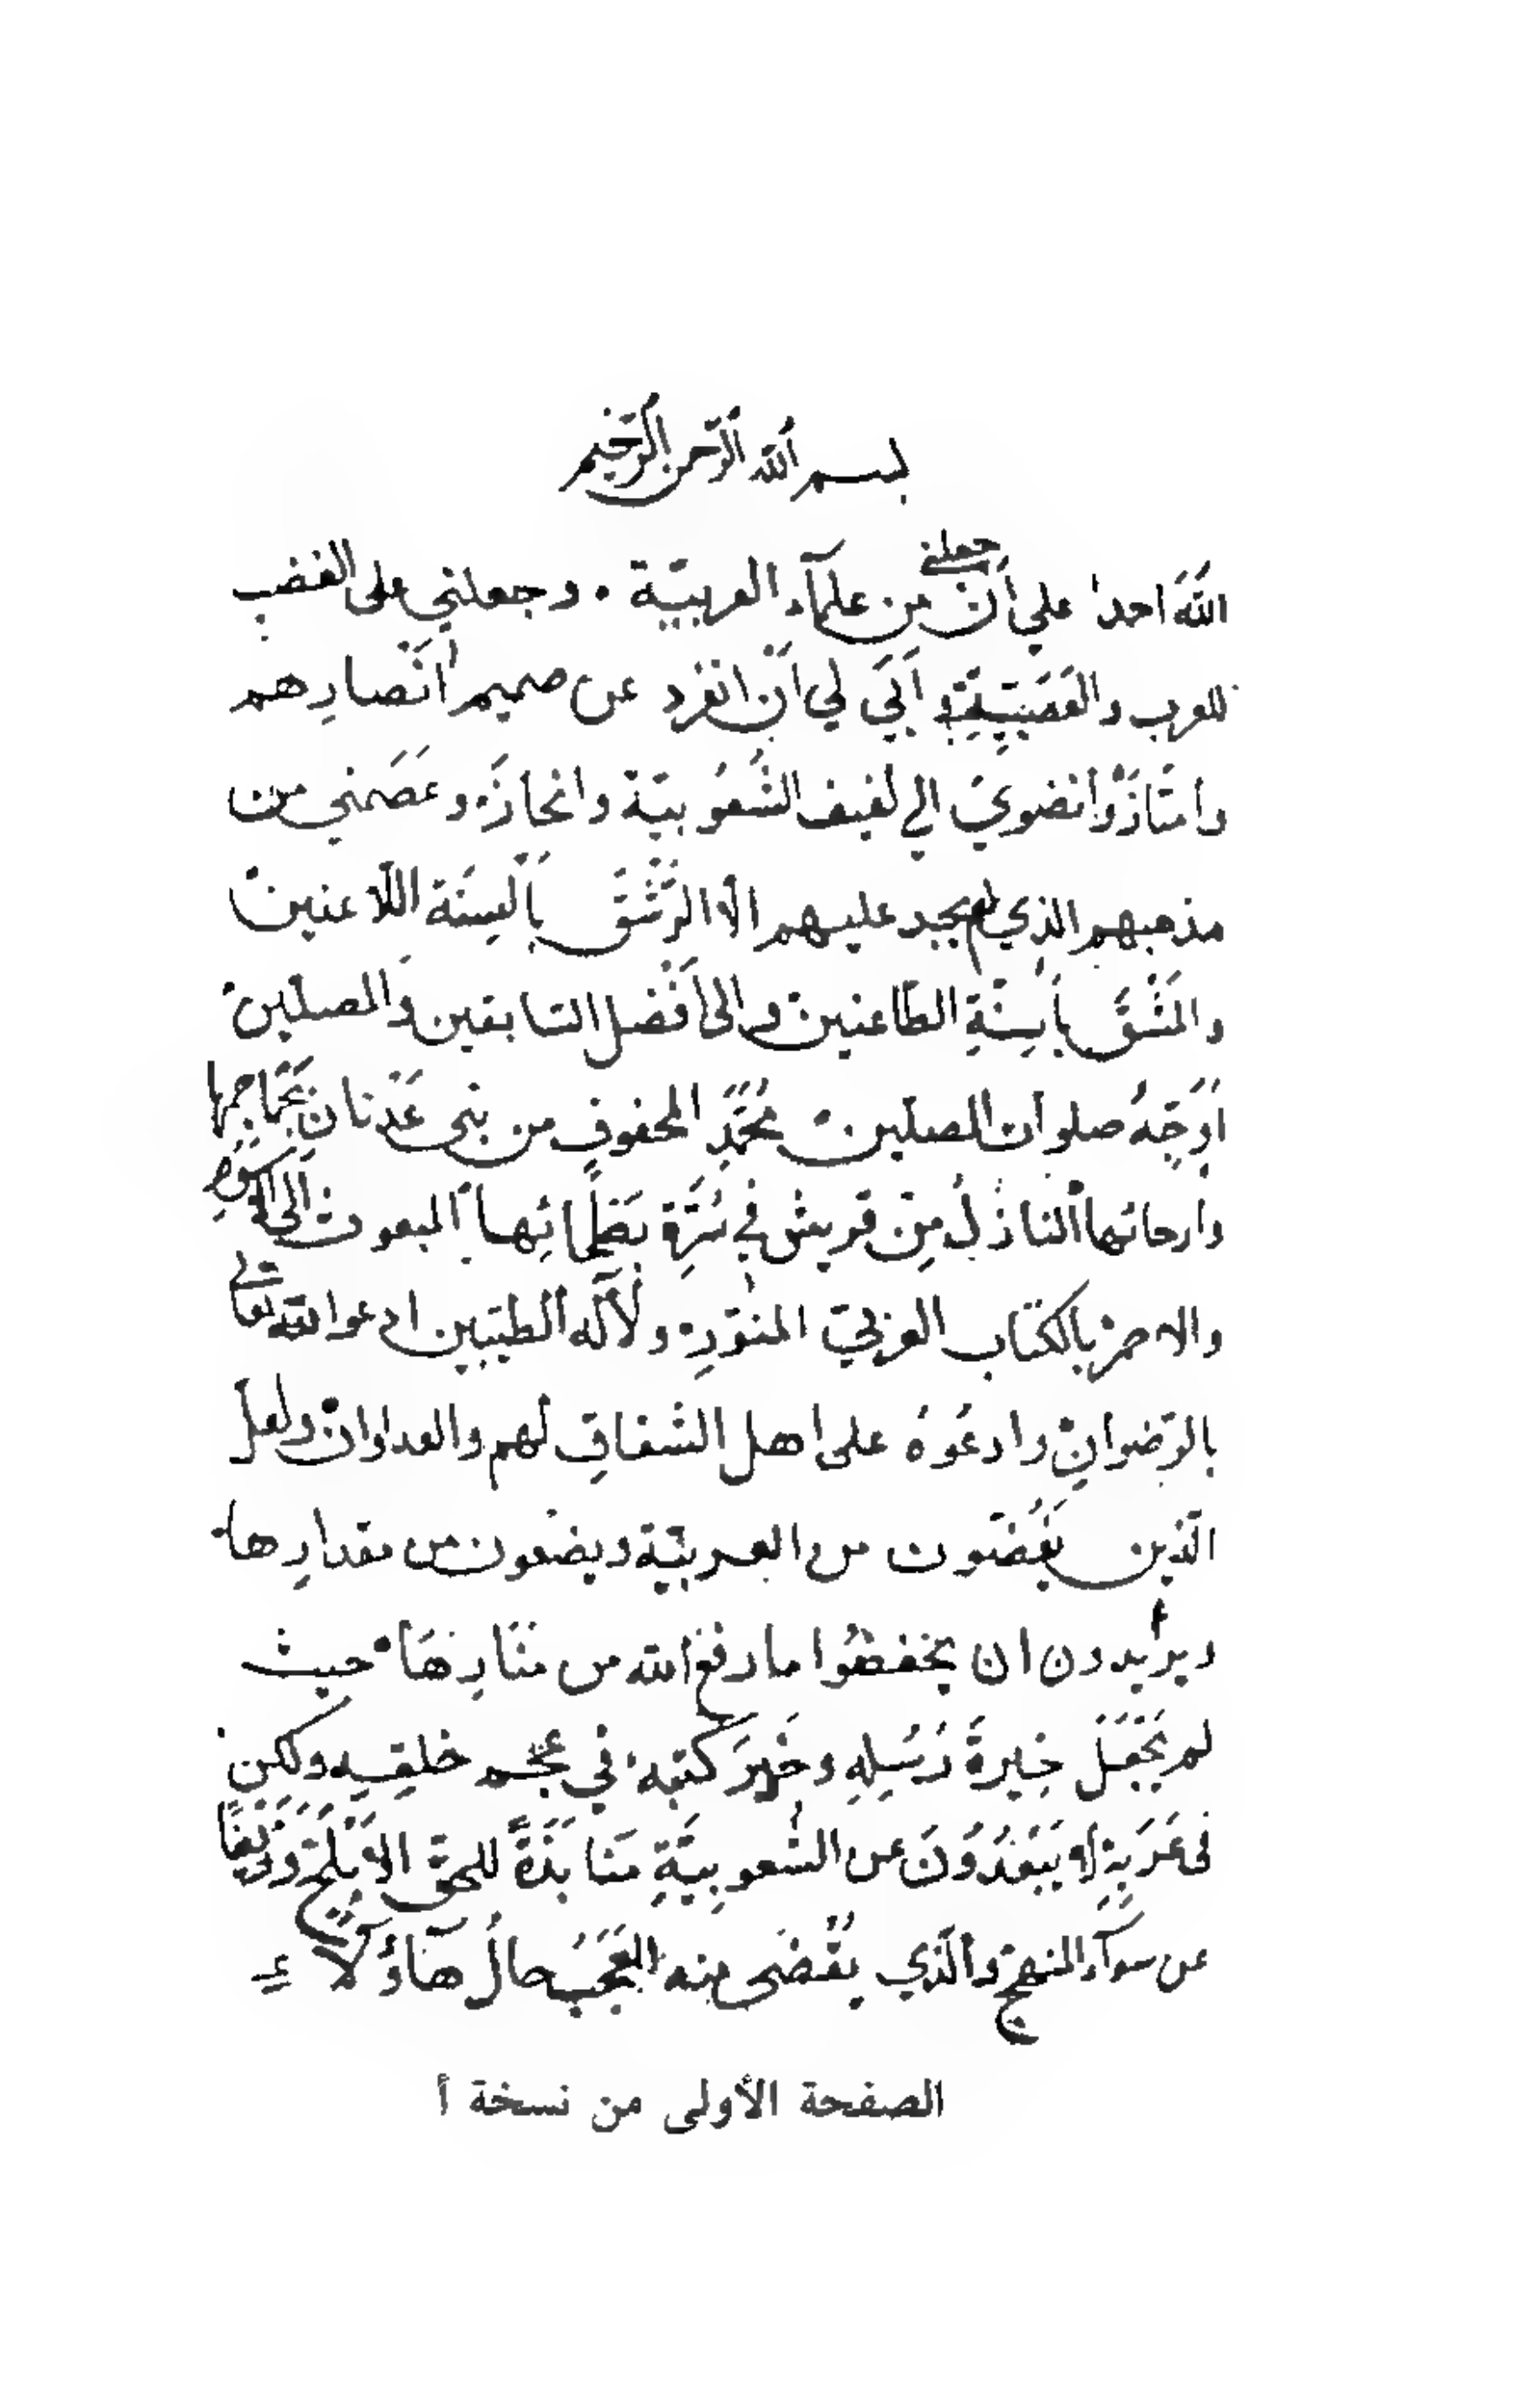 بسم الله الرحمن الرحيم
اللهَ احمد على أنْ جعلني من علمآء العربيّة . وجعلني على الغضب
للعرب والعَصَبيّة أبَى لي أنْ انفرد عن صميم أنْصارِهم
وامتَازَ وأنضويَ الى لفيف الشُعُوبيّة وانحازَ وعَصَمني من
مذهبهم الذي لم يجد عليهم الا الرَشْقَ بألسِنَة اللّاعنين
والمَشْقَ بأسِنّةِ الطّاعنين والى أفْضل السّابقين والمصلّين
أوَجِّهُ صلوات المصلين محمَّدٍ المحفوفِ من بنى عَدْنان بجَماجِمها
وارحائها النازلُ مِن قريش في سُرَّةِ بَطحائِها المبعوث إلى الأسْوَدِ
والاحمرِ بالكتاب العربيّ المنوّرِ ولآله الطيّبين ادعوا الله تعالى
بالرّضوانِ وادعُوهُ على اهل الشقاقِ لهم والعداوان ولعلّ
الّذين يغُضّون من العربيّة ويضعون من مقدارِها
ويرِيدون ان يخفضُوا ما رفع الله من منَارِهَا حيث
لم يَجْعَلْ خِيرةَ رُسُلِهِ وخَيْرَ كتبه في عَجَم خلقِه ولكن
فى عَرَبِهِ لا يَبْعُدُوَنَ عن الشّعوبِيّةِ مَنَابَذَةً للحقّ الأبْلَجِ وَزَيْغًا
عن سوآء المنهج والّذي يُقْضَى منه العَجَبُ حالُ هآؤُلآءِ
الصفحة الأولى من نسخة أ